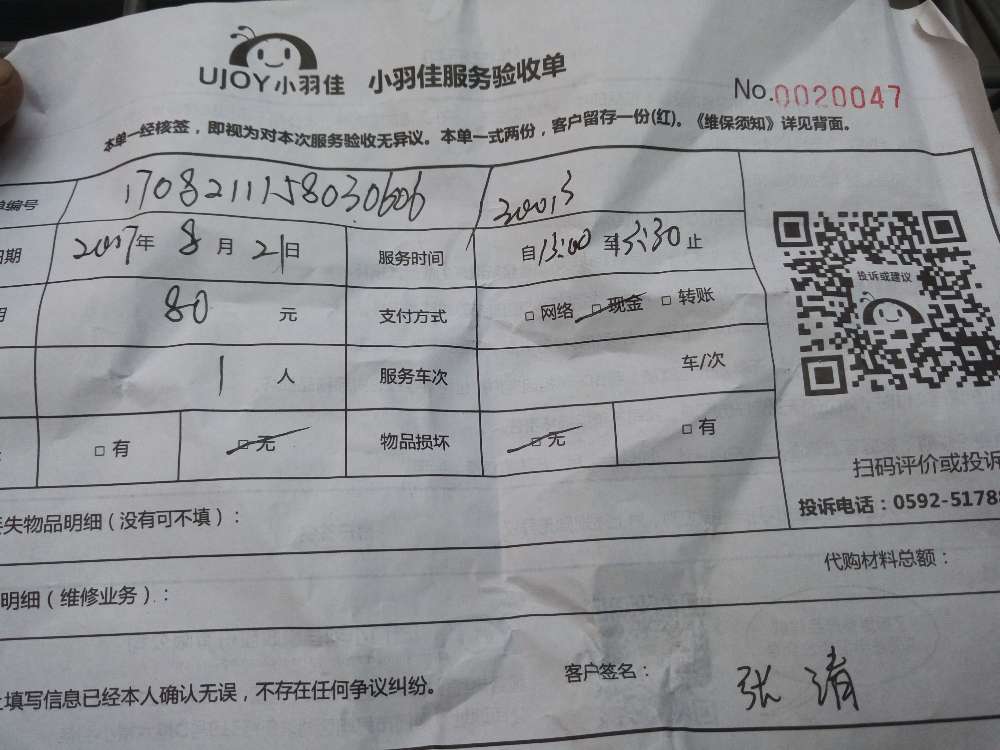 UJOY小羽佳 小羽佳服务验收单
No.0020047
本单一经核签，即视为对本次服务验收无异议。本单一式两份，客户留存一份(红)。《维保须知》详见背面。
单编号 1708211158030606 30013
日期 2017年 8 月 21日 服务时间 自13:00 至3:30 止
用 80 元 支付方式 □ 网络 □ 现金 □ 转账
1 人 服务车次 车/次
□ 有 □ 无 物品损坏 □ 无 □ 有
投诉或建议
扫码评价或投诉
投诉电话：0592-5178
丢失物品明细（没有可不填）：
代购材料总额：
明细（维修业务）：
上填写信息已经本人确认无误，不存在任何争议纠纷。
客户签名： 张清